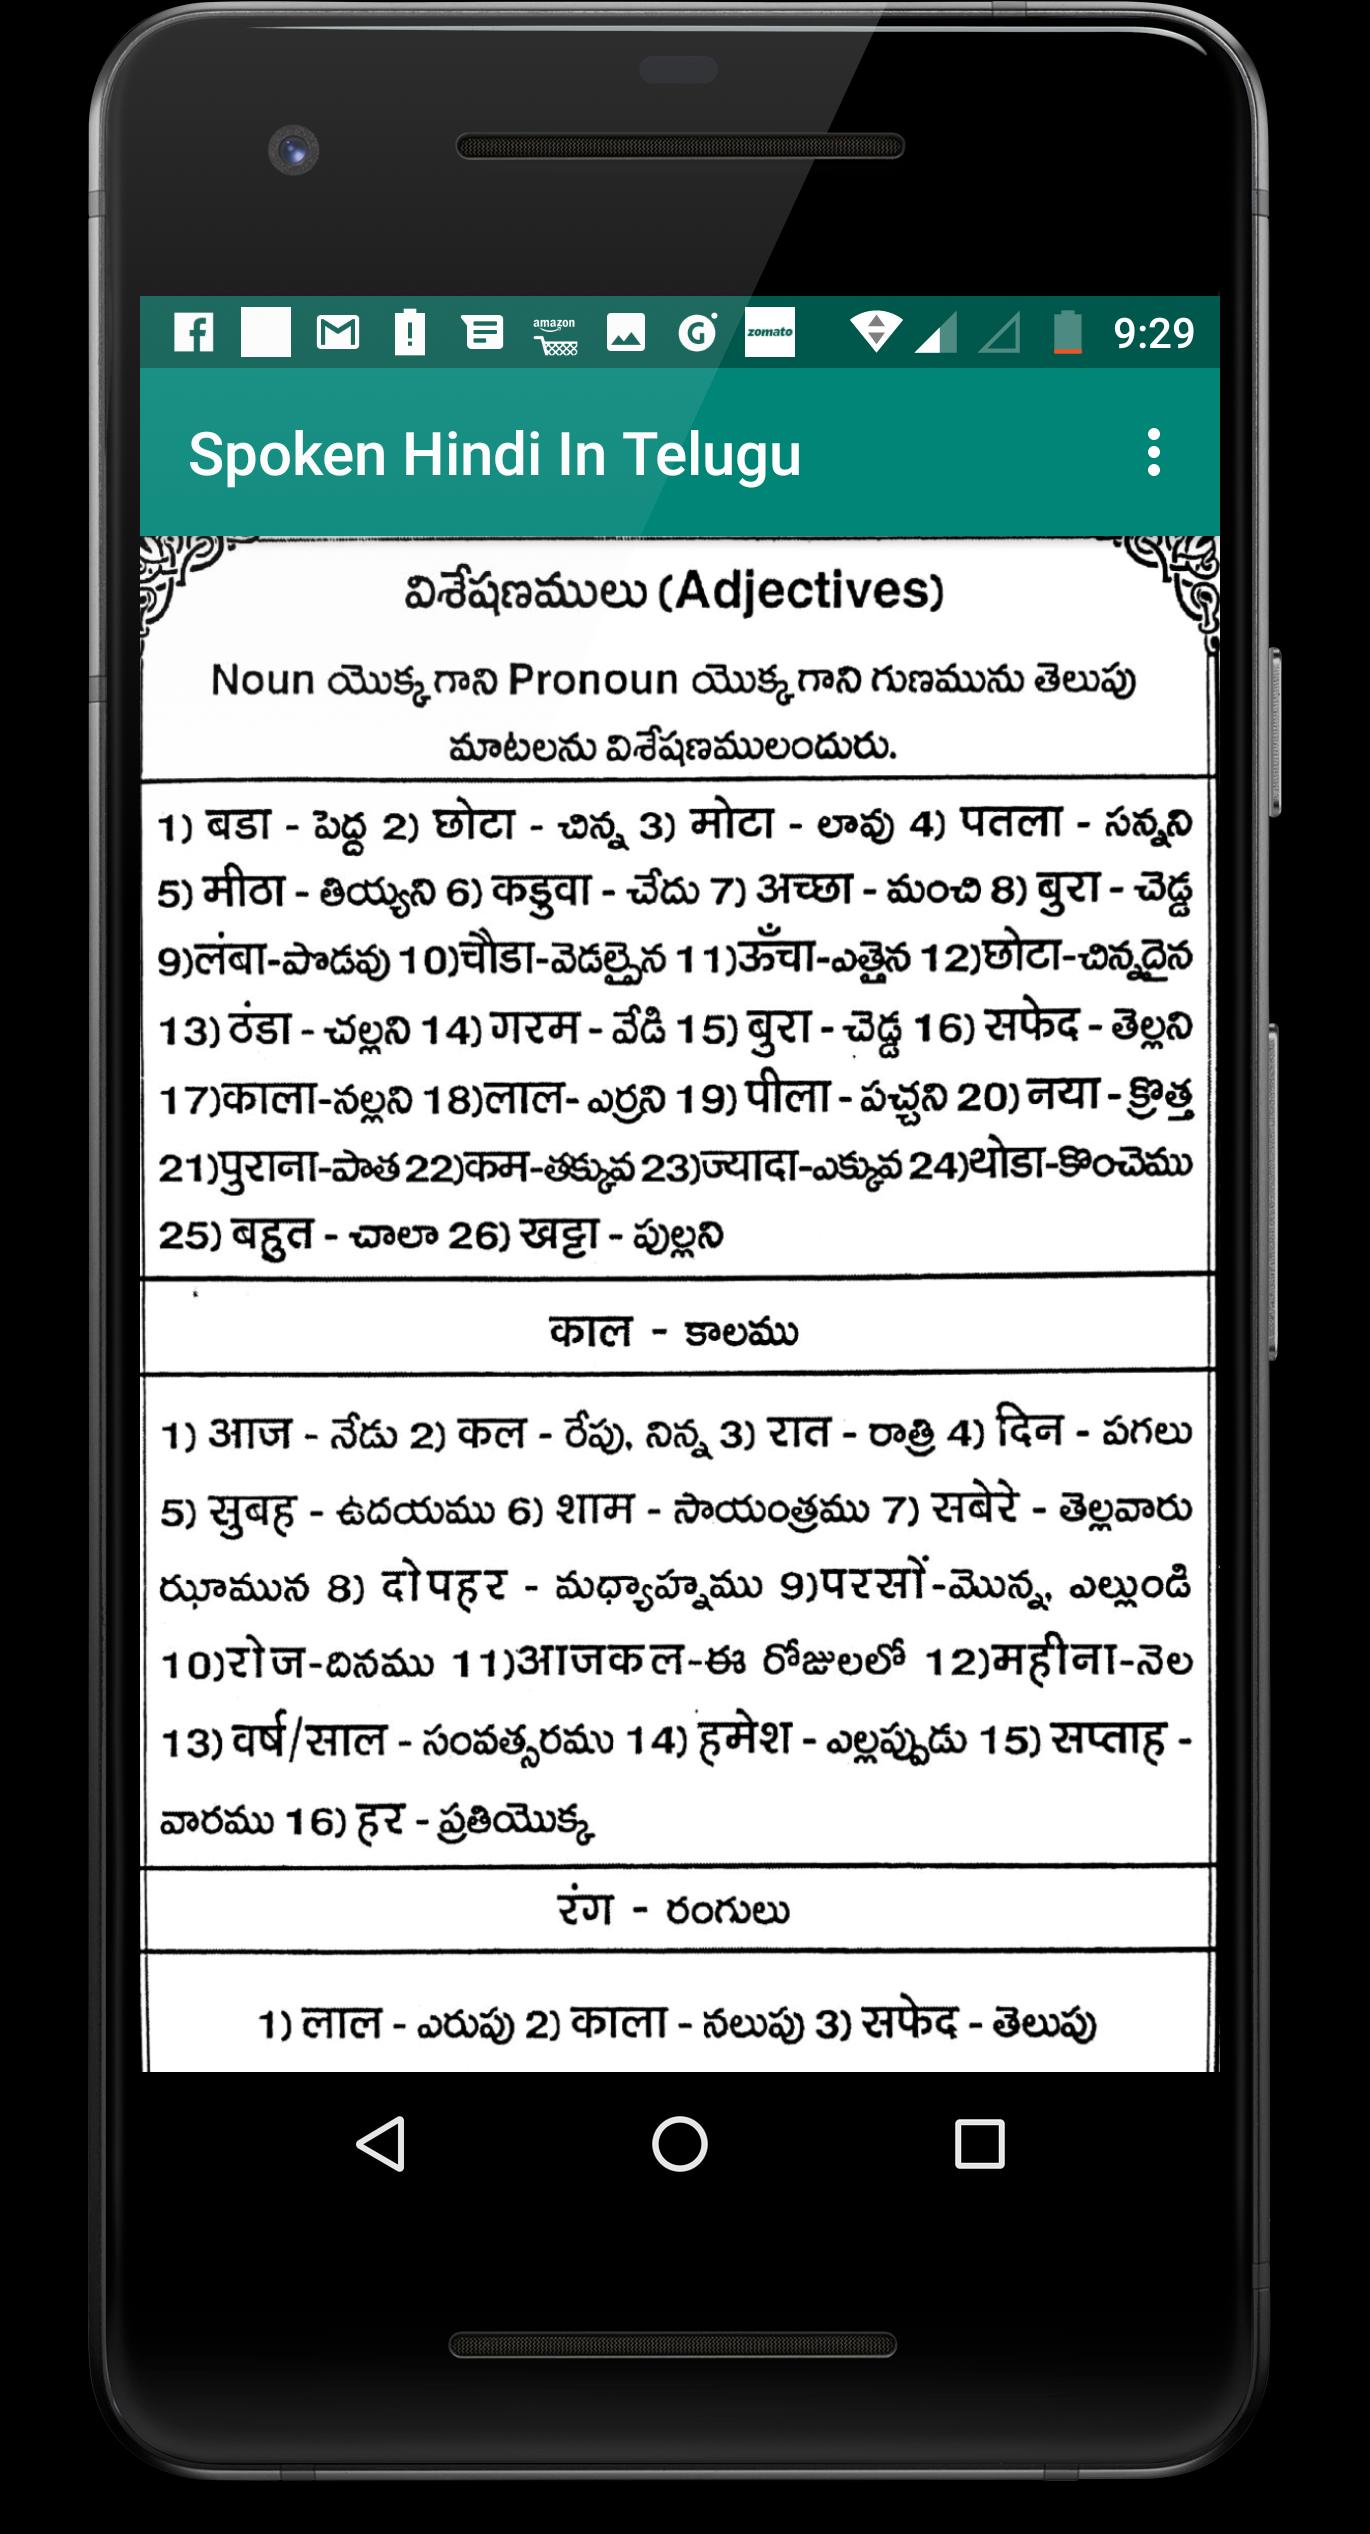 amazon
zomato
9:29
Spoken Hindi In Telugu
విశేషణములు (Adjectives)
Noun యొక్కగాని Pronoun యొక్కగాని గుణమును తెలుపు
మాటలను విశేషణములందురు.
1) बडा - పెద్ద 2) छोटा - చిన్న 3) मोटा - లావు 4) पतला - సన్నని
5) मीठा - తియ్యని 6) कडुवा - చేదు 7) अच्छा - మంచి 8) बुरा - చెడ్డ
9)लंबा-పొడవు 10)चौडा-వెడల్పైన 11)ऊँचा-ఎత్తైన 12)छोटा-చిన్నదైన
13) ठंडा - చల్లని 14) गरम - వేడి 15) बुरा - చెడ్డ 16) सफेद - తెల్లని
17)काला-నల్లని 18)लाल- ఎర్రని 19) पीला - పచ్చని 20) नया - క్రొత్త
21)पुराना-పాత 22)कम-తక్కువ 23)ज्यादा-ఎక్కువ 24)थोडा-కొంచెము
25) बहुत - చాలా 26) खट्टा - పుల్లని
काल - కాలము
1) आज - నేడు 2) कल - రేపు, నిన్న 3) रात - రాత్రి 4) दिन - పగలు
5) सुबह - ఉదయము 6) शाम - సాయంత్రము 7) सबेरे - తెల్లవారు
ఝామున 8) दोपहर - మధ్యాహ్నము 9)परसों-మొన్న, ఎల్లుండి
10)रोज-దినము 11)आजकल-ఈ రోజులలో 12)महीना-నెల
13) वर्ष/साल - సంవత్సరము 14) हमेश - ఎల్లప్పుడు 15) सप्ताह -
వారము 16) हर - ప్రతియొక్క
रंग - రంగులు
1) लाल - ఎరుపు 2) काला - నలుపు 3) सफेद - తెలుపు